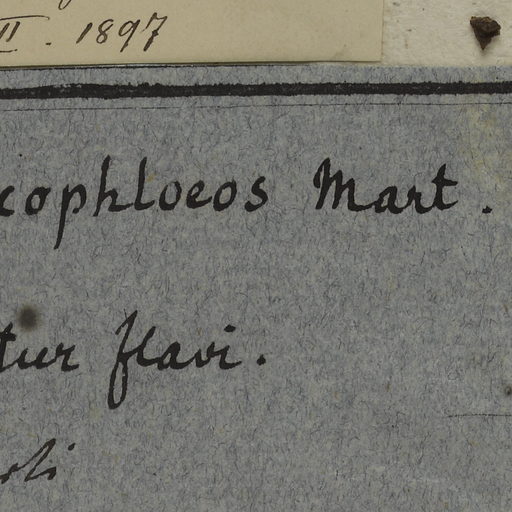 II. 1897
cophloeos Mart.
tur flavi.
oli